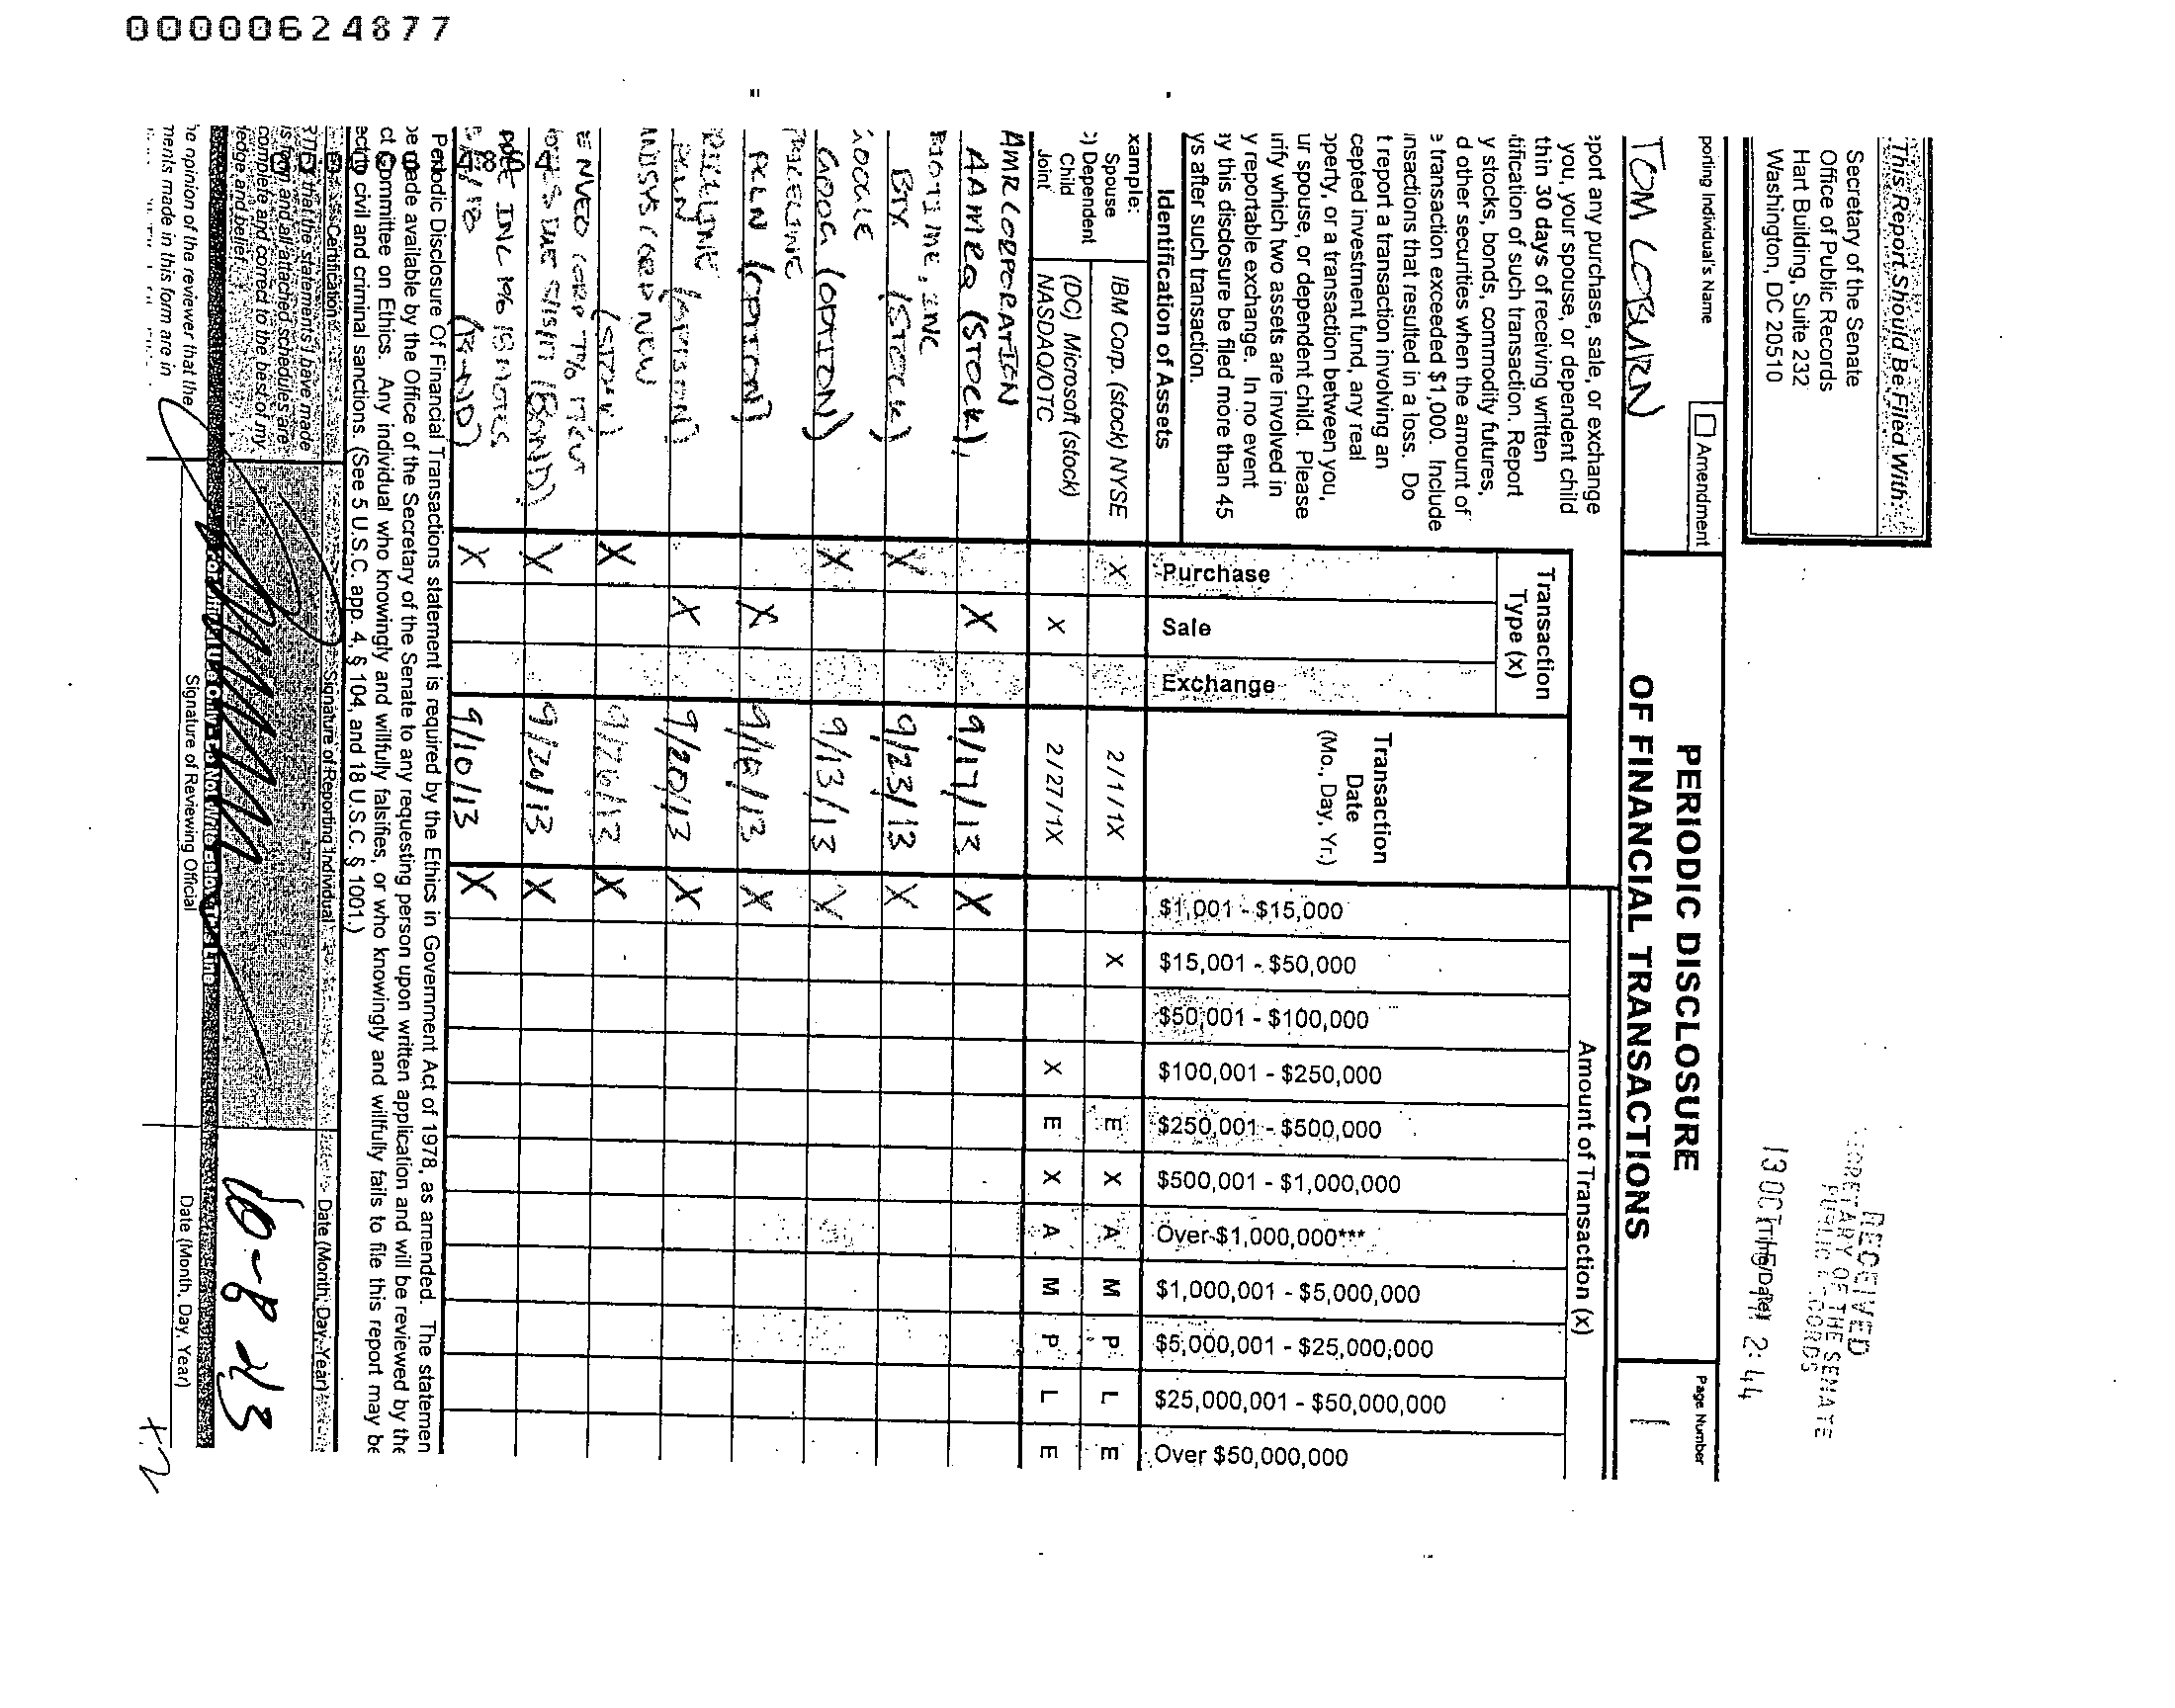 00000624877
This Report Should Be Filed With:
Secretary of the Senate
Office of Public Records
Hart Building, Suite 232
Washington, DC 20510
RECEIVED
SECRETARY OF THE SENATE
PUBLIC RECORDS
13 OCT
2:44
porting Individual's Name
Amendment
TOM COBURN
PERIODIC DISCLOSURE
OF FINANCIAL TRANSACTIONS
Page Number
1
eport any purchase, sale, or exchange
you, your spouse, or dependent child
thin 30 days of receiving written
tification of such transaction. Report
y stocks, bonds, commodity futures,
d other securities when the amount of
e transaction exceeded $1,000. Include
nsactions that resulted in a loss. Do
t report a transaction involving an
cepted investment fund, any real
operty, or a transaction between you,
ur spouse, or dependent child. Please
arify which two assets are involved in
y reportable exchange. In no event
ay this disclosure be filed more than 45
ys after such transaction.
Identification of Assets
Transaction
Type (x)
Purchase
Sale
Exchange
Transaction
Date
(Mo., Day, Yr.)
Amount of Transaction (x)
$1,001 - $15,000
$15,001 - $50,000
$50,001 - $100,000
$100,001 - $250,000
$250,001 - $500,000
$500,001 - $1,000,000
Over $1,000,000***
$1,000,001 - $5,000,000
$5,000,001 - $25,000,000
$25,000,001 - $50,000,000
Over $50,000,000
xample:
Spouse
) Dependent
Child
Joint
IBM Corp. (stock) NYSE X 2/1/1X X E X A M P L E
(DC) Microsoft (stock)
NASDAQ/OTC X 2/27/1X X E X A M P L E
AMR CORPORATION
AAMRQ (STOCK) X 9/17/13 X
INC
(STOCK) X 9/23/13 X
GOOG (OPTION) X 9/13/13 X
PRICELINE
PCLN (OPTION) X 9/18/13 X
PRICELINE
(OPTION) X 9/20/13 X
CORP NEW
(STOCK) X 9/26/13 X
CORP 7%
(BOND) X 9/20/13 X
INC 1% NOTES
(BOND) X 9/10/13 X
Periodic Disclosure Of Financial Transactions statement is required by the Ethics in Government Act of 1978, as amended. The statemen
be made available by the Office of the Secretary of the Senate to any requesting person upon written application and will be reviewed by the
ct Committee on Ethics. Any individual who knowingly and willfully falsifies, or who knowingly and willfully fails to file this report may be
ect to civil and criminal sanctions. (See 5 U.S.C. app. 4, § 104, and 18 U.S.C. § 1001.)
Certification
Signature of Reporting Individual
Date (Month, Day, Year)
that the statements I have made
is form and all attached schedules are
complete and correct to the best of my
ledge and belief.
10-8-13
For Official Use Only - Do Not Write Below This Line
he opinion of the reviewer that the
ments made in this form are in
Signature of Reviewing Official
Date (Month, Day, Year)